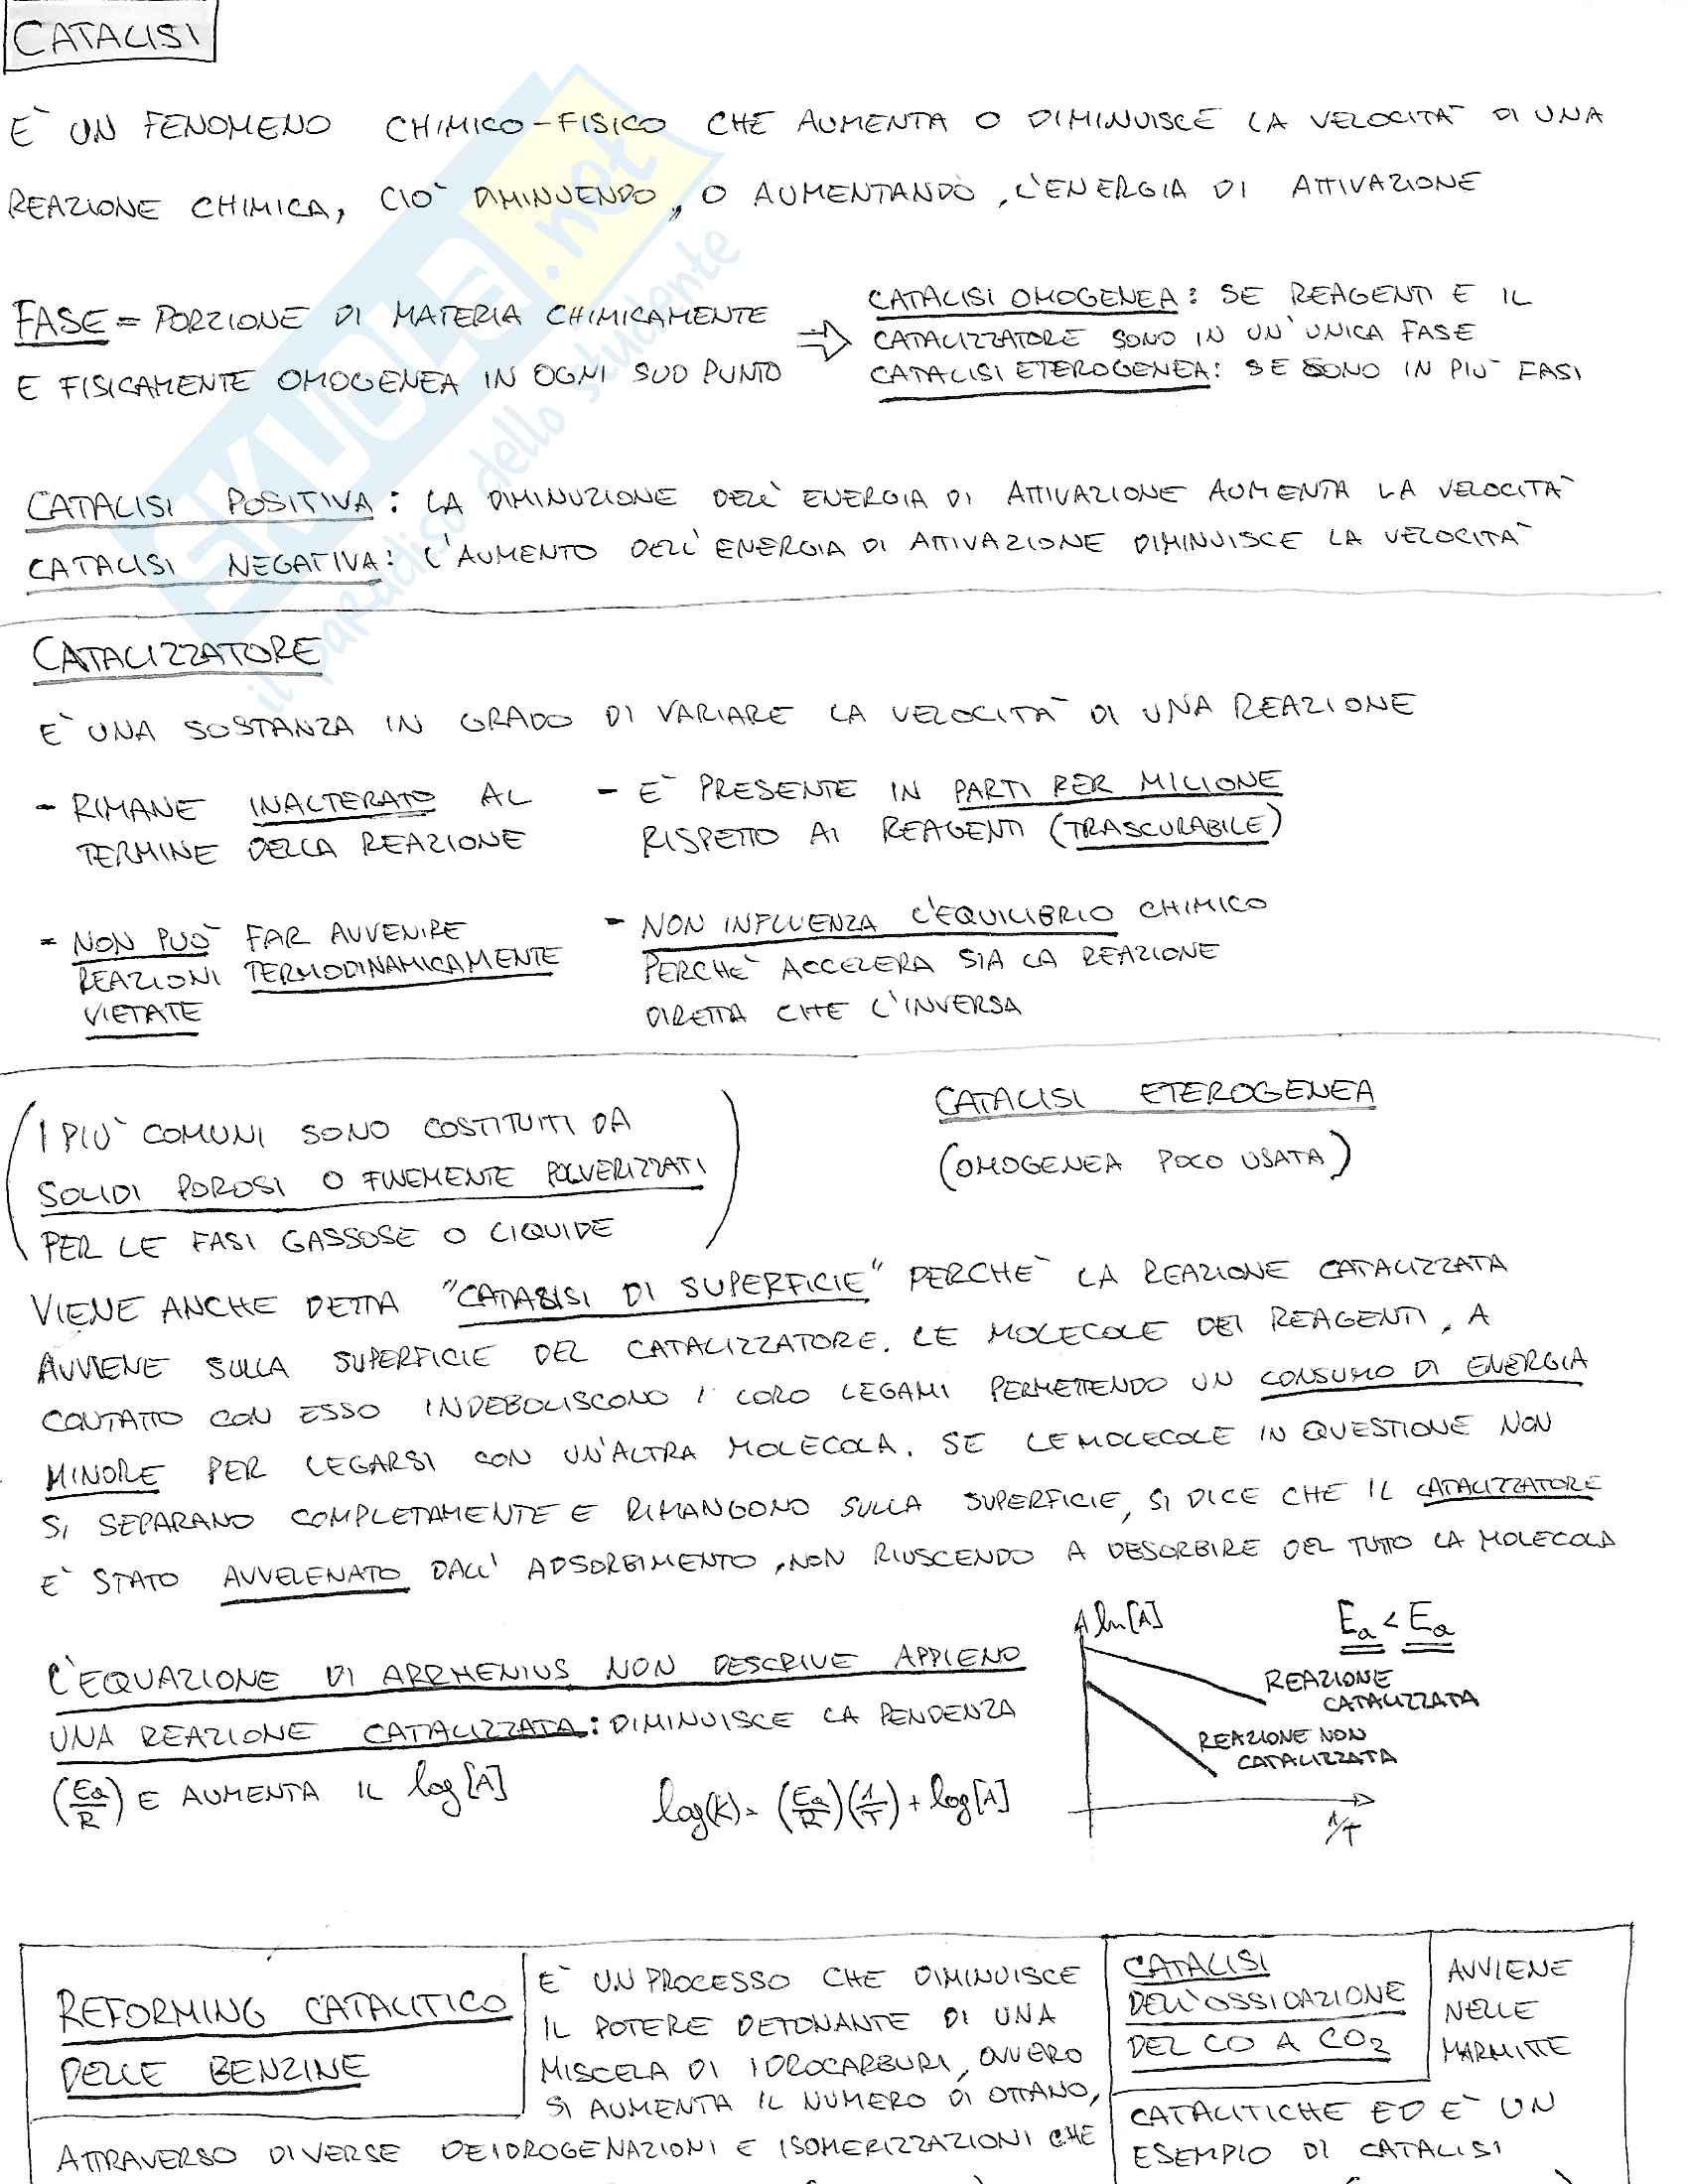 CATALISI
E` UN FENOMENO CHIMICO-FISICO CHE AUMENTA O DIMINUISCE LA VELOCITA` DI UNA
REAZIONE CHIMICA, CIO` DIMINUENDO, O AUMENTANDO, L'ENERGIA DI ATTIVAZIONE
FASE = PORZIONE DI MATERIA CHIMICAMENTE
E FISICAMENTE OMOGENEA IN OGNI SUO PUNTO
⇒
CATALISI OMOGENEA: SE REAGENTI E IL
CATALIZZATORE SONO IN UN'UNICA FASE
CATALISI ETEROGENEA: SE SONO IN PIU` FASI
CATALISI POSITIVA: LA DIMINUZIONE DELL'ENERGIA DI ATTIVAZIONE AUMENTA LA VELOCITA`
CATALISI NEGATIVA: L'AUMENTO DELL'ENERGIA DI ATTIVAZIONE DIMINUISCE LA VELOCITA`
SKUOLA.net
il paradiso dello studente
CATALIZZATORE
E` UNA SOSTANZA IN GRADO DI VARIARE LA VELOCITA` DI UNA REAZIONE
- RIMANE INALTERATO AL
TERMINE DELLA REAZIONE
- E` PRESENTE IN PARTI PER MILIONE
RISPETTO AI REAGENTI (TRASCURABILE)
- NON PUO` FAR AVVENIRE
REAZIONI TERMODINAMICAMENTE
VIETATE
- NON INFLUENZA L'EQUILIBRIO CHIMICO
PERCHE` ACCELERA SIA LA REAZIONE
DIRETTA CHE L'INVERSA
(I PIU` COMUNI SONO COSTITUITI DA
SOLIDI POROSI O FINEMENTE POLVERIZZATI
PER LE FASI GASSOSE O LIQUIDE)
CATALISI ETEROGENEA
(OMOGENEA POCO USATA)
VIENE ANCHE DETTA "CATALISI DI SUPERFICIE" PERCHE` LA REAZIONE CATALIZZATA
AVVIENE SULLA SUPERFICIE DEL CATALIZZATORE. LE MOLECOLE DEI REAGENTI, A
CONTATTO CON ESSO INDEBOLISCONO I LORO LEGAMI PERMETTENDO UN CONSUMO DI ENERGIA
MINORE PER LEGARSI CON UN'ALTRA MOLECOLA. SE LE MOLECOLE IN QUESTIONE NON
SI SEPARANO COMPLETAMENTE E RIMANGONO SULLA SUPERFICIE, SI DICE CHE IL CATALIZZATORE
E` STATO AVVELENATO DALL'ADSORBIMENTO, NON RIUSCENDO A DESORBIRE DEL TUTTO LA MOLECOLA
L'EQUAZIONE DI ARRHENIUS NON DESCRIVE APPIENO
UNA REAZIONE CATALIZZATA: DIMINUISCE LA PENDENZA
(Ea/R) E AUMENTA IL log[A]
log(K) = (Ea/R)(1/T) + log[A]
ln[A]
Ea < Ea
REAZIONE
CATALIZZATA
REAZIONE NON
CATALIZZATA
1/T
REFORMING CATALITICO
DELLE BENZINE
E` UN PROCESSO CHE DIMINUISCE
IL POTERE DETONANTE DI UNA
MISCELA DI IDROCARBURI, OVVERO
SI AUMENTA IL NUMERO DI OTTANO,
ATTRAVERSO DIVERSE DEIDROGENAZIONI E ISOMERIZZAZIONI CHE
CATALISI
DELL'OSSIDAZIONE
DEL CO A CO2
AVVIENE
NELLE
MARMITTE
CATALITICHE ED E` UN
ESEMPIO DI CATALISI